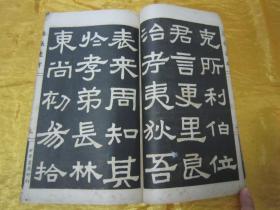 克所利伯位
君言更里良
治孝夷狄吾
表来周知其
於孝弟長林
東尚初昜拾